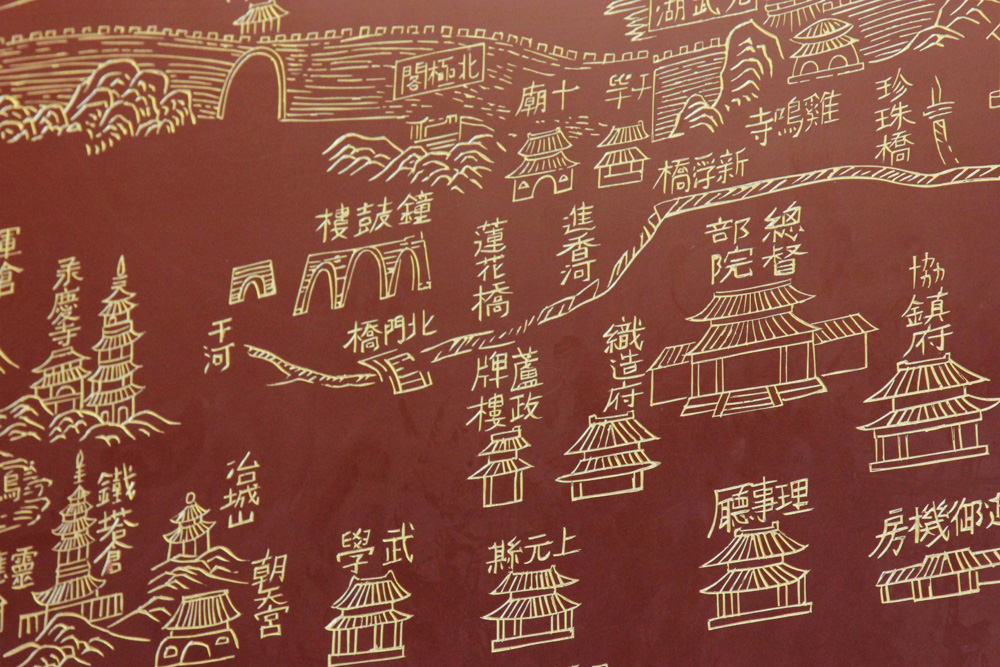 玄武湖
北極閣
十廟
雞鳴寺
珍珠橋
新浮橋
鐘鼓樓
蓮花橋
進香河
總督
部院
協鎮府
承慶寺
干河
北門橋
織造府
蘆政
牌樓
鐵塔倉
冶城山
朝天宮
武學
上元縣
理事廳
造御機房
靈應